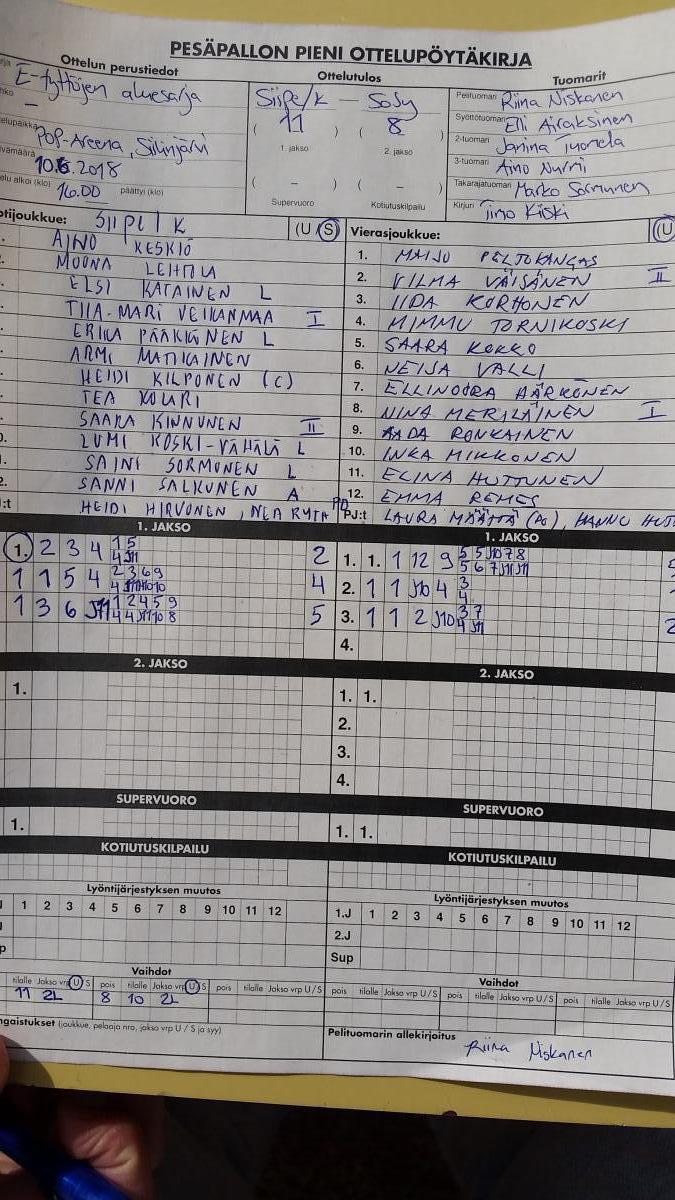 PESÄPALLON PIENI OTTELUPÖYTÄKIRJA
Ottelun perustiedot
E-tyttöjen aluesarja
–
POP-Areena, Siilinjärvi
10.6.2018
16.00 päättyi (klo)
Ottelutulos
Siipe/K – SoJy
( 11 ) ( 8 )
1. jakso 2. jakso
( – ) ( – )
Supervuoro Kotiutuskilpailu
Tuomarit
Pelituomari Riina Niskanen
Syöttötuomari Elli Airaksinen
2-tuomari Janina Juomela
3-tuomari Aino Nurmi
Takarajatuomari Marko Sormunen
Kirjuri Timo Kiiski
otijoukkue: SIIPE / K (U S)
AINO KESKIÖ
MOONA LEHTOLA
ELSI KATAINEN L
TIIA-MARI VEIKANMAA I
ERIKA PÄÄKKÖNEN L
ARMI MATIKAINEN
HEIDI KILPONEN (C)
TEA KOURI
SAARA KINNUNEN II
LUMI KOSKI-VÄHÄLÄ L
SAINI SORMUNEN L
SANNI SALKUNEN A
HEIDI HIRVONEN, NEA RYTÄ PD
Vierasjoukkue: (U
1. MAIJU PELTOKANGAS
2. VILMA VÄISÄNEN II
3. IIDA KORHONEN
4. MIMMU TORNIKOSKI
5. SAARA KOKKO
6. NEIJA VALLI
7. ELLINOORA HÄRKÖNEN
8. NINA MERILÄINEN I
9. AADA RONKAINEN
10. INKA MIKKONEN
11. ELINA HUTTUNEN
12. EMMA REMES
PJ:t LAURA MÄÄTTÄ (PD), HANNU HUT
1. JAKSO
1. 2 3 4 1 5 2
4 J11
1 1 5 4 2 3 6 9 4
1 3 6 J11 1 2 4 5 9 5
4 4 J11 10 8
1. JAKSO
1. 1. 1 12 9 5 5 J10 7 8
5 6 7 J11 J11
2. 1 1 J10 4 3
4
3. 1 1 2 J10 3 7 2
4 J11
4.
2. JAKSO
1.
2. JAKSO
1. 1.
2.
3.
4.
SUPERVUORO
1.
SUPERVUORO
1. 1.
KOTIUTUSKILPAILU
KOTIUTUSKILPAILU
Lyöntijärjestyksen muutos
1 2 3 4 5 6 7 8 9 10 11 12
Lyöntijärjestyksen muutos
1.J 1 2 3 4 5 6 7 8 9 10 11 12
2.J
Sup
Vaihdot
tilalle Jakso vrp U/S pois tilalle Jakso vrp U/S pois tilalle Jakso vrp U/S
11 2L 8 10 2L
Vaihdot
pois tilalle Jakso vrp U/S pois tilalle Jakso vrp U/S pois tilalle Jakso vrp U/S
ngaistukset (joukkue, pelaaja nro, jakso vrp U / S ja syy)
Pelituomarin allekirjoitus
Riina Niskanen